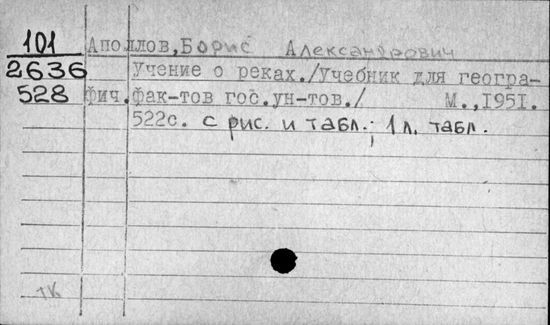 101 Аполлов, Борис Александрович
2636 Учение о реках./Учебник для геогра-
528 фич.фак-тов гос.ун-тов./ М.,1951.
522с. с рис. и табл.; 1 л. табл.
тк